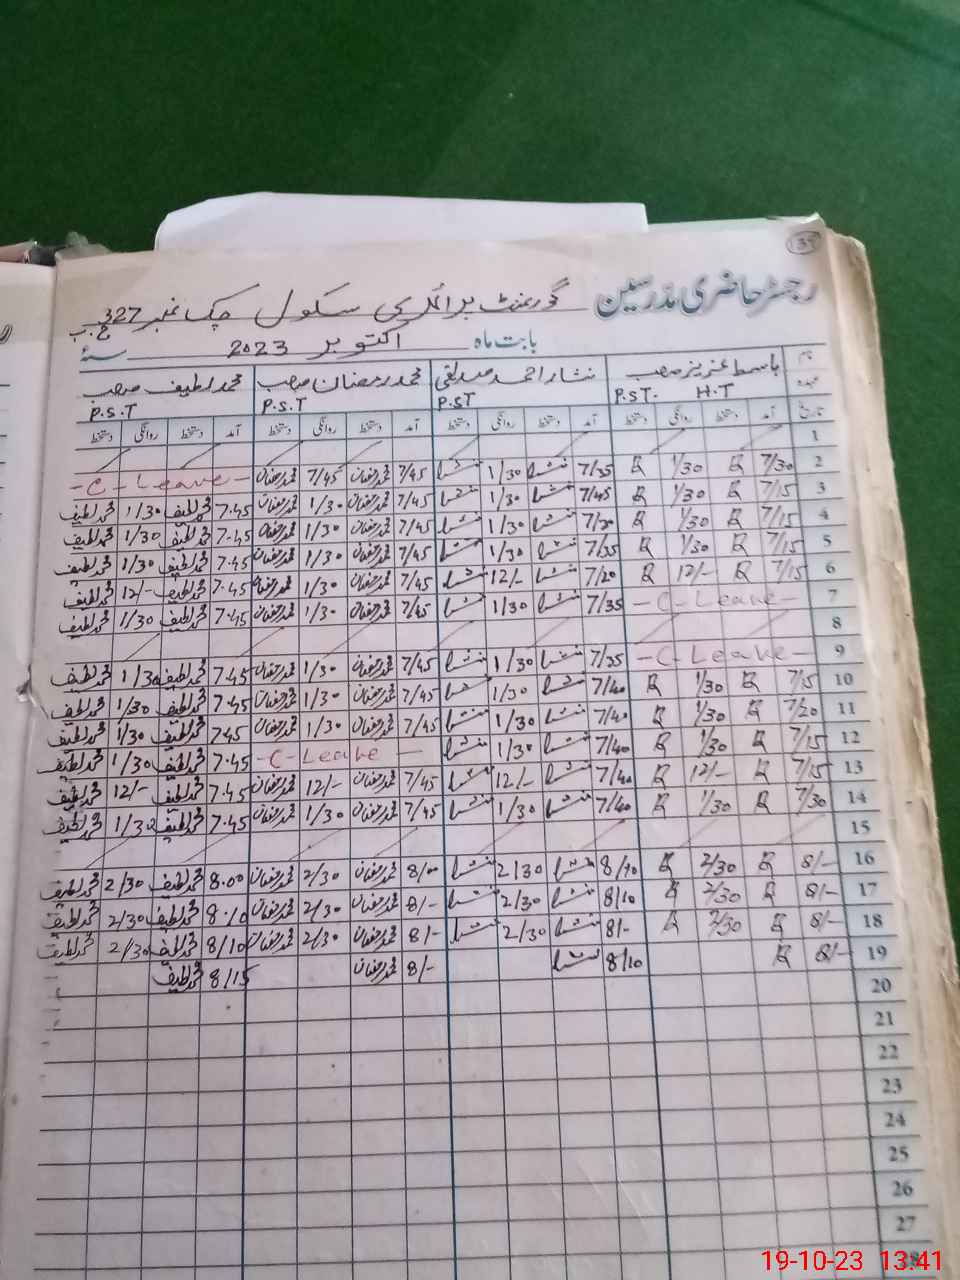 135
رجسٹر حاضری مدرسین گورنمنٹ پرائمری سکول چک نمبر 327 ج.ب
بابت ماہ اکتوبر 2023 سنہ
نام باسط عزیز صاحب نثار احمد صدیقی محمد رمضان صاحب محمد لطیف صاحب
عہدہ P.ST. H.T P.ST P.S.T P.S.T
تاریخ آمد دستخط روانگی دستخط آمد دستخط روانگی دستخط آمد دستخط روانگی دستخط آمد دستخط روانگی دستخط
1
2 7/30 1/30 7/35 1/30 7/45 محمد رمضان 7/45 محمد رمضان -C-Leave-
3 7/15 1/30 7/45 1/30 7/45 محمد رمضان 1/30 محمد رمضان 7.45 محمد لطیف 1/30 محمد لطیف
4 7/15 1/30 7/20 1/30 7/45 محمد رمضان 1/30 محمد رمضان 7.45 محمد لطیف 1/30 محمد لطیف
5 7/15 1/30 7/35 1/30 7/45 محمد رمضان 1/30 محمد رمضان 7.45 محمد لطیف 1/30 محمد لطیف
6 7/15 12/- 7/20 12/- 7/45 محمد رمضان 1/30 محمد رمضان 7.45 محمد لطیف 12/- محمد لطیف
7 -C-Leave- 7/35 1/30 7/45 محمد رمضان 1/30 محمد رمضان 7.45 محمد لطیف 1/30 محمد لطیف
8
9 -C-Leave- 7/35 1/30 7/45 محمد رمضان 1/30 محمد رمضان 7.45 محمد لطیف 1/30 محمد لطیف
10 7/15 1/30 7/40 1/30 7/45 محمد رمضان 1/30 محمد رمضان 7.45 محمد لطیف 1/30 محمد لطیف
11 7/20 1/30 7/40 1/30 7/45 محمد رمضان 1/30 محمد رمضان 7.45 محمد لطیف 1/30 محمد لطیف
12 7/15 1/30 7/40 1/30 -C-Leave- 7.45 محمد لطیف 1/30 محمد لطیف
13 7/15 12/- 7/40 12/- 7/45 محمد رمضان 12/- محمد رمضان 7.45 محمد لطیف 12/- محمد لطیف
14 7/30 1/30 7/40 1/30 7/45 محمد رمضان 1/30 محمد رمضان 7.45 محمد لطیف 1/30 محمد لطیف
15
16 8/- 2/30 8/10 2/30 8/00 محمد رمضان 2/30 محمد رمضان 8.00 محمد لطیف 2/30 محمد لطیف
17 8/- 2/30 8/10 2/30 8/- محمد رمضان 2/30 محمد رمضان 8.10 محمد لطیف 2/30 محمد لطیف
18 8/- 2/30 8/- 2/30 8/- محمد رمضان 2/30 محمد رمضان 8/10 محمد لطیف 2/30 محمد لطیف
19 8/- 8/10 8/- محمد رمضان 8/15 محمد لطیف
20
21
22
23
24
25
26
27
28
19-10-23 13:41